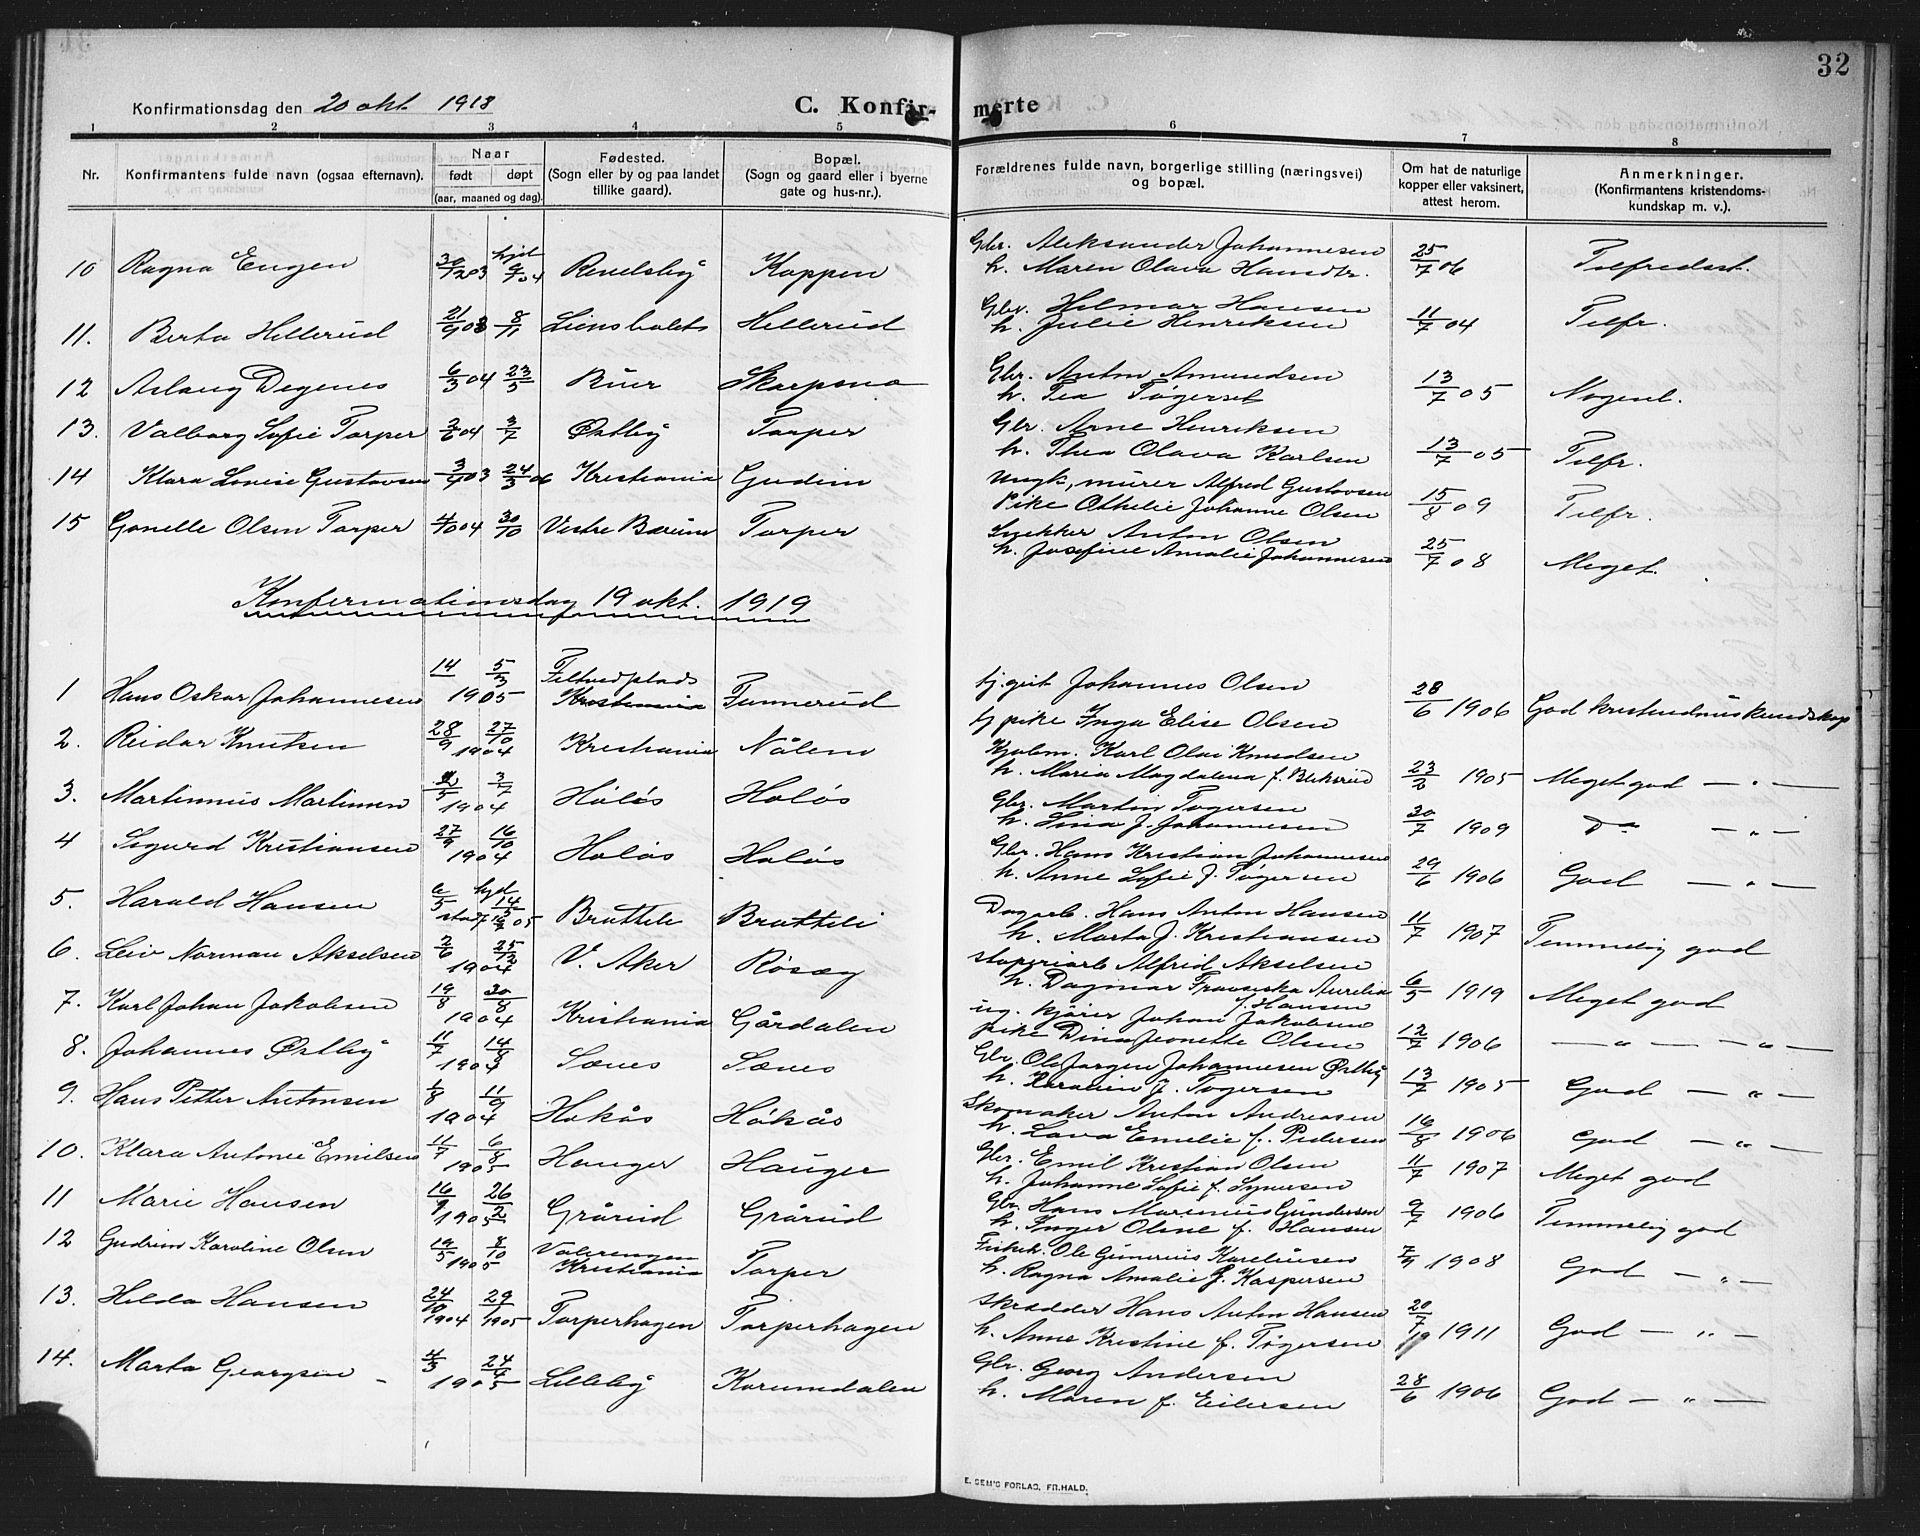 32
Konfirmationsdag den 20 okt. 1918
C. Konfir-merte
1 2 3 4 5 6 7 8
Nr. Konfirmantens fulde navn (ogsaa efternavn). Naar født døpt (aar, maaned og dag). Fødested. (Sogn eller by og paa landet tillike gaard). Bopæl. (Sogn og gaard eller i byerne gate og hus-nr.). Forældrenes fulde navn, borgerlige stilling (næringsvei) og bopæl. Om hat de naturlige kopper eller vaksinert, attest herom. Anmerkninger. (Konfirmantens kristendoms-kundskap m. v.).
10 Ragna Engen 30/12 03 hjd. 9/ 04 Revelsby Koppen Gbr. Aleksander Johannesen h. Maren Olava Hansdtr. 25/7 06 Tilfredsst.
11. Berta Hillerud 21/9 03 8/11 Lionsbalet Hillerud Gbr. Hilmar Hansen h. Julie Henriksen 11/7 04 Tilfr.
12 Aslaug Degenes 6/3 04 23/5 Buer Skarpsno Gbr. Anton Amundsen h. Tea Tøgersen 13/7 05 Nogenl.
13. Valborg Sofie Torper 3/6 04 3/7 Østby Torper Gbr. Arne Henriksen h. Thea Olava Karlsen 13/7 05 Tilfr.
14 Klara Lovise Gustavsen 3/9 03 24/3 06 Kristiania Gudim Ungk., murer Alfred Gustavsen Pike Othelie Johanne Olsen 15/8 09 Tilfr.
15 Gonelle Olsen Torper 4/10 04 30/10 Vestre Bærum Torper Snekker Anton Olsen h. Josefine Amalie Johannesen 25/7 08 Meget.
Konfirmationsdag 19 okt. 1919
1 Hans Oskar Johannesen 14 5/3 1905 Filtvedplads Kristiania Funnerud tj. gut Johannes Olsen tj pike Inga Elise Olsen 28/6 1906 God kristendomskundskap
2. Reidar Knutsen 28/9 27/10 1904 Kristiania Nålem Karl Olai Knudsen h. Maria Magdalena f. Bleksrud 23/2 1905 Meget god — " —
3. Martinius Martinsen /5 3/7 1904 Holøs Holøs Gbr. Martin Togersen h. Lina f. Johannesen 30/7 1909 Do — " —
4 Sigurd Kristiansen 27/9 16/10 1904 Holøs Holøs Gbr. Hans Kristian Johannesen h. Anne Sofie f. Tøgersen 29/6 1906 God — " —
5. Harald Hansen 6/5 hjd 14/5 stadf. 05 Bratteli Bratteli Dagarb. Hans Anton Hansen h. Marta f. Kristiansen 11/7 1907 Temmelig god
6. Leiv Norman Akselsen 2/6 25/12 1904 V. Aker Rösæg Alfred Akselsen h. Dagmar Franciska Aurelia f. Hansen 6/5 1919 Meget god
7. Karl Johan Jakobsen 19/8 30/8 1904 Kristiania Gårdalen ug. kjører Johan Jakobsen pike Dina Jeonette Olsen 12/7 1906 — " — — " —
8. Johannes Østby 11/7 14/8 1904 Sænes Sænes Gbr. Ole Jørgen Johannesen Østby h. f. Togersen 13/7 1905 God — " —
9. Hans Petter Antonsen 1/8 11/9 1904 Hokås Håkås Skomaker Anton Andreasen h. Lava Emelie f. Pedersen 16/8 1906 God — " —
10. Klara Antonie Emilsen 11/7 6/8 1905 Hauger Hauger Gbr. Emil Kristian Olsen h. Johanne Sofie f. Syversen 11/7 1907 Meget god
11 Marie Hansen 16/9 26/2 1905 Grårud Grårud Gbr. Hans Marinius Gundersen h. Inger Olsne f. Hansen 9/7 1906 Temmelig god
12 Gudrun Karoline Olsen 19/5 8/10 1905 Valerengen Kristiania Torper Ole Gunerius Kareliussen h. Ragna Amalie f. Kaspersen 7/9 1908 God — " —
13. Hilda Hansen 24/10 1904 29/1 1905 Torperhagen Torperhagen Skrædder Hans Anton Hansen h. Anne Kristine f. Tøgersen 20/7 1911 God — " —
14. Marta Georgsen 4/3 24/4 1905 Lilleby Korumdalen Gbr. Georg Andersen h. Maren f. Eilersen 28/6 1906 God — " —
E. SEM'S FORLAG, FR.HALD.